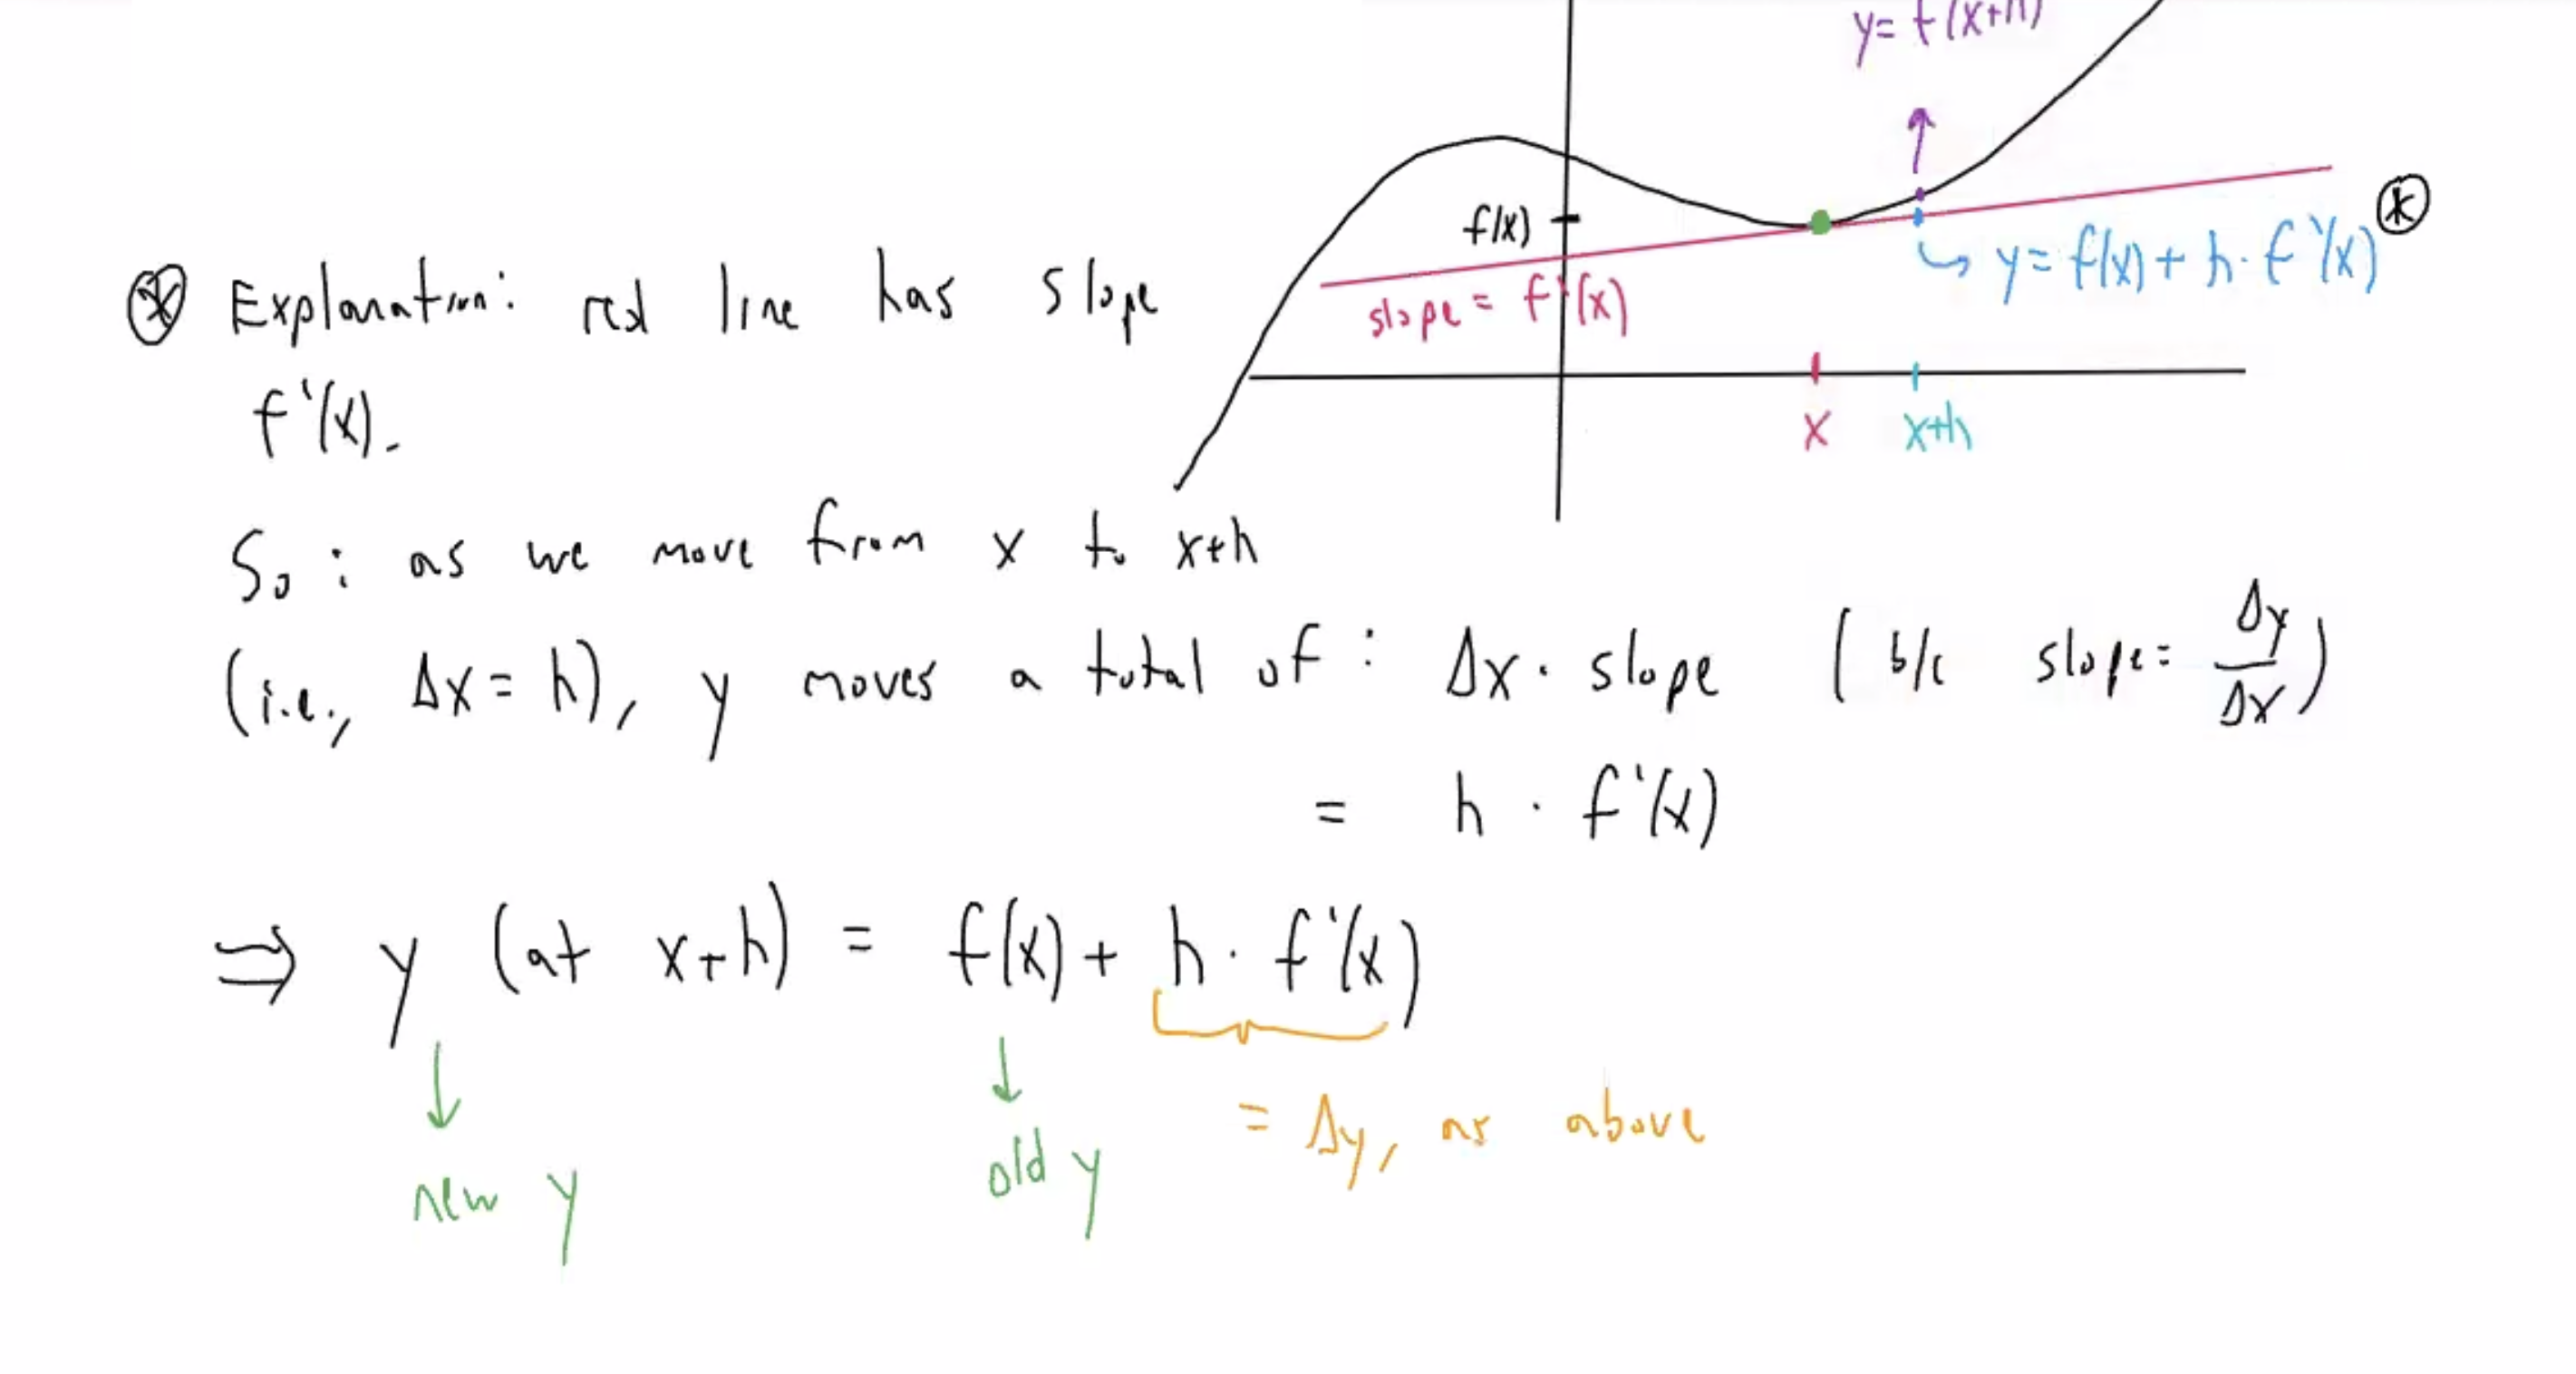 y= f(x+h)
f(x)
y= f(x) + h· f'(x) *
slope = f'(x)
x x+h
* Explanation: red line has slope
f'(x).
So: as we move from x to x+h
(i.e., Δx = h), y moves a total of: Δx · slope ( b/c slope = Δy/Δx )
= h · f'(x)
⇒ y (at x+h) = f(x) + h · f'(x)
= Δy, as above
new y old y